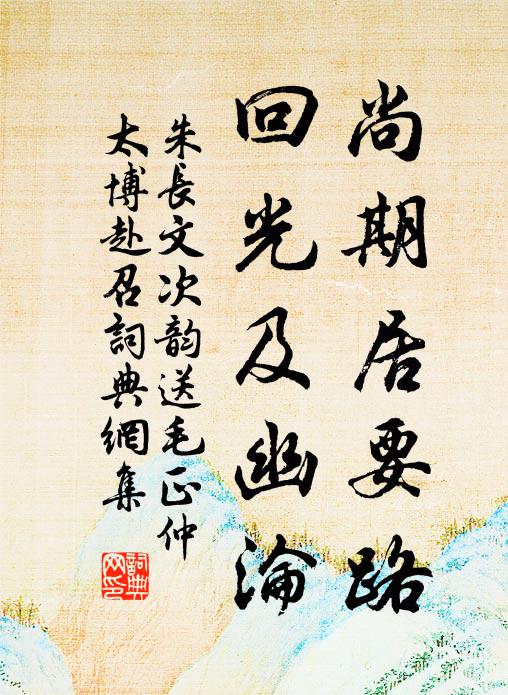 尚期居要路
回光及幽淪
朱長文次韵送毛正仲
太博赴召詞典網集
詞典网印